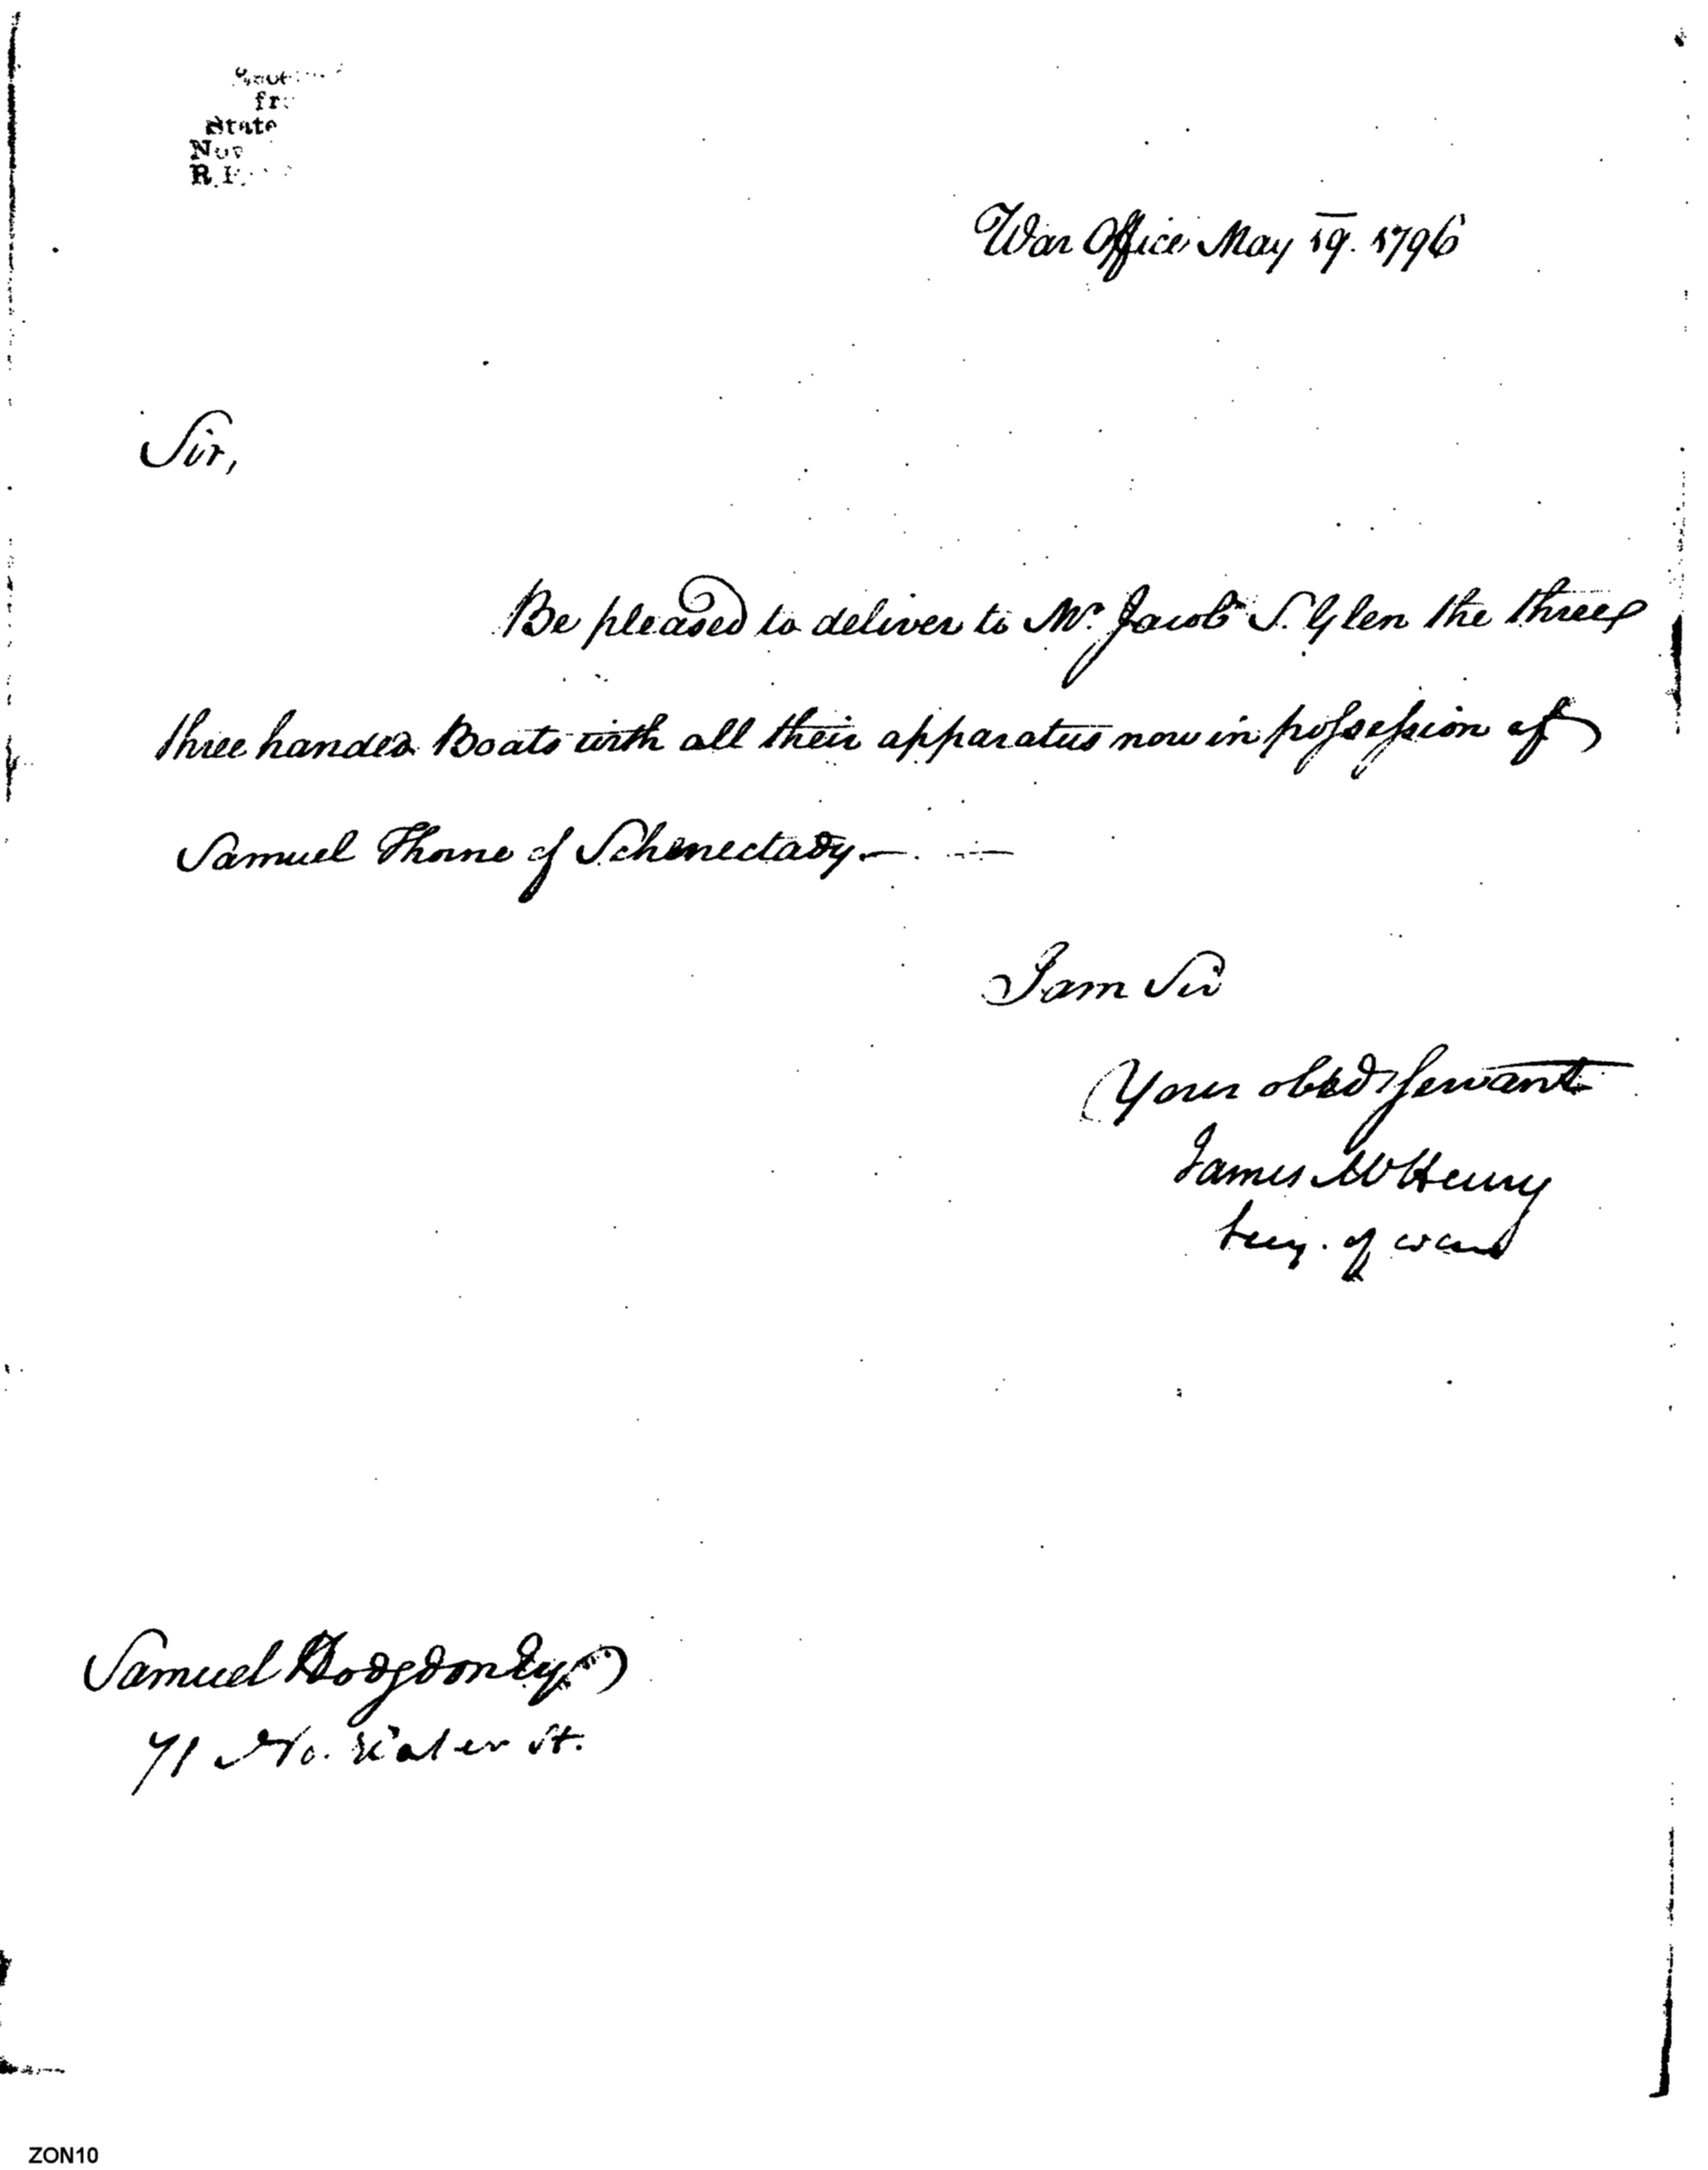 fr
State
Nov
R.
War Office May 19. 1796
Sir,
Be pleased to deliver to Mr. Jacob S. Glen the three
three handed Boats with all their apparatus now in possession of
Samuel Thorne of Schenectady
I am Sir
Your obed servant
James McHenry
Secy. of war
Samuel Hodgdon Esqr.
71 No. Water St.
ZON10